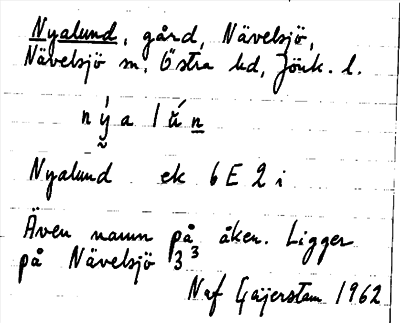 Nyalund, gård, Nävelsjö,
Nävelsjö sn, Östra hd, Jönk. l.
n ý a l ú n
Nyalund ek 6E 2 i
Även namn på åker. Ligger
på Nävelsjö 3³
Naf Gaijerstam 1962